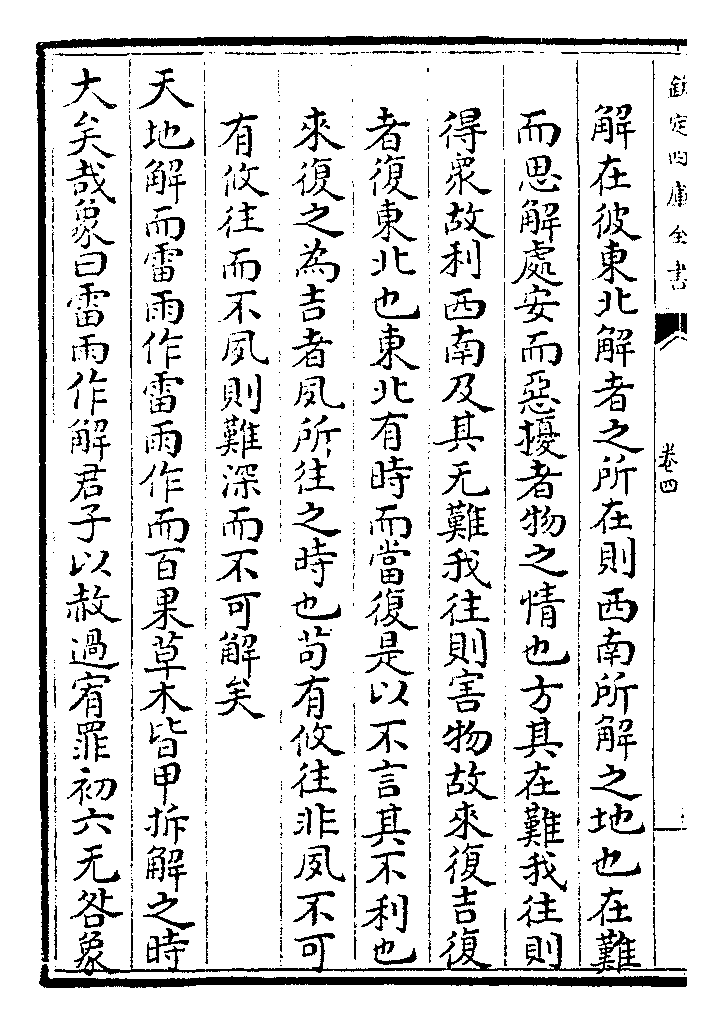 欽定四庫全書
卷四
解在彼東北解者之所在則西南所解之地也在難
而思解處安而惡擾者物之情也方其在難我往則
得衆故利西南及其无難我往則害物故來復吉復
者復東北也東北有時而當復是以不言其不利也
來復之為吉者夙所往之時也茍有攸往非夙不可
有攸往而不夙則難深而不可解矣
天地解而雷雨作雷雨作而百果草木皆甲拆解之時
大矣哉象曰雷雨作解君子以赦過宥罪初六无咎象